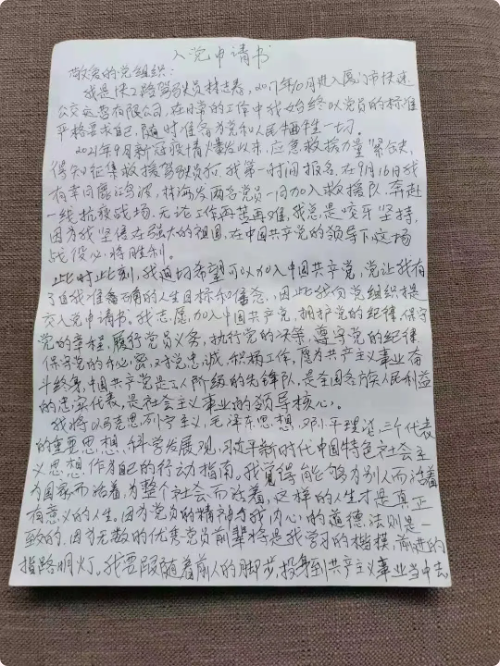 入党申请书
敬爱的党组织:
我是快2路驾驶员林志春,2017年10月进入厦门市快速
公交运营有限公司,在日常的工作中我始终以党员的标准
严格要求自己,随时准备为党和人民牺牲一切。
2021年9月新冠疫情爆发以来,应急救援力量紧缺,
得知征集救援驾驶员后,我第一时间报名,在9月16日我
有幸同展鸿、林海发两名党员一同加入救援队,奔赴
一线抗疫战场,无论工作再苦再难,我总是咬牙坚持,
因为我坚信在强大的祖国,在中国共产党的领导下,这场
战役必将胜利。
此时此刻,我迫切希望可以加入中国共产党,党让我有
了自我准备明确的人生目标和信念,因此我向党组织提
交入党申请书。我志愿加入中国共产党,拥护党的纪律,保守
党的章程,履行党员义务,执行党的决策,遵守党的纪律,
保守党的秘密,对党忠诚,积极工作,愿为共产主义事业奋
斗终身,中国共产党是工人阶级的先锋队,是全国各族人民利益
的忠实代表,是社会主义事业的领导核心。
我将以马克思列宁主义、毛泽东思想、邓小平理论、三个代表
的重要思想、科学发展观、习近平新时代中国特色社会主
义思想作为自己的行动指南。我觉得能够为别人而活着
为国家而活着,为整个社会而活着,这样的人生才是真正
有意义的人生,因为党员的精神与我内心的道德法则是一
致的,因为无数的优秀党员前辈将是我学习的楷模,前进的
指路明灯。我要跟随着前人的脚步,投身到共产主义事业当中去